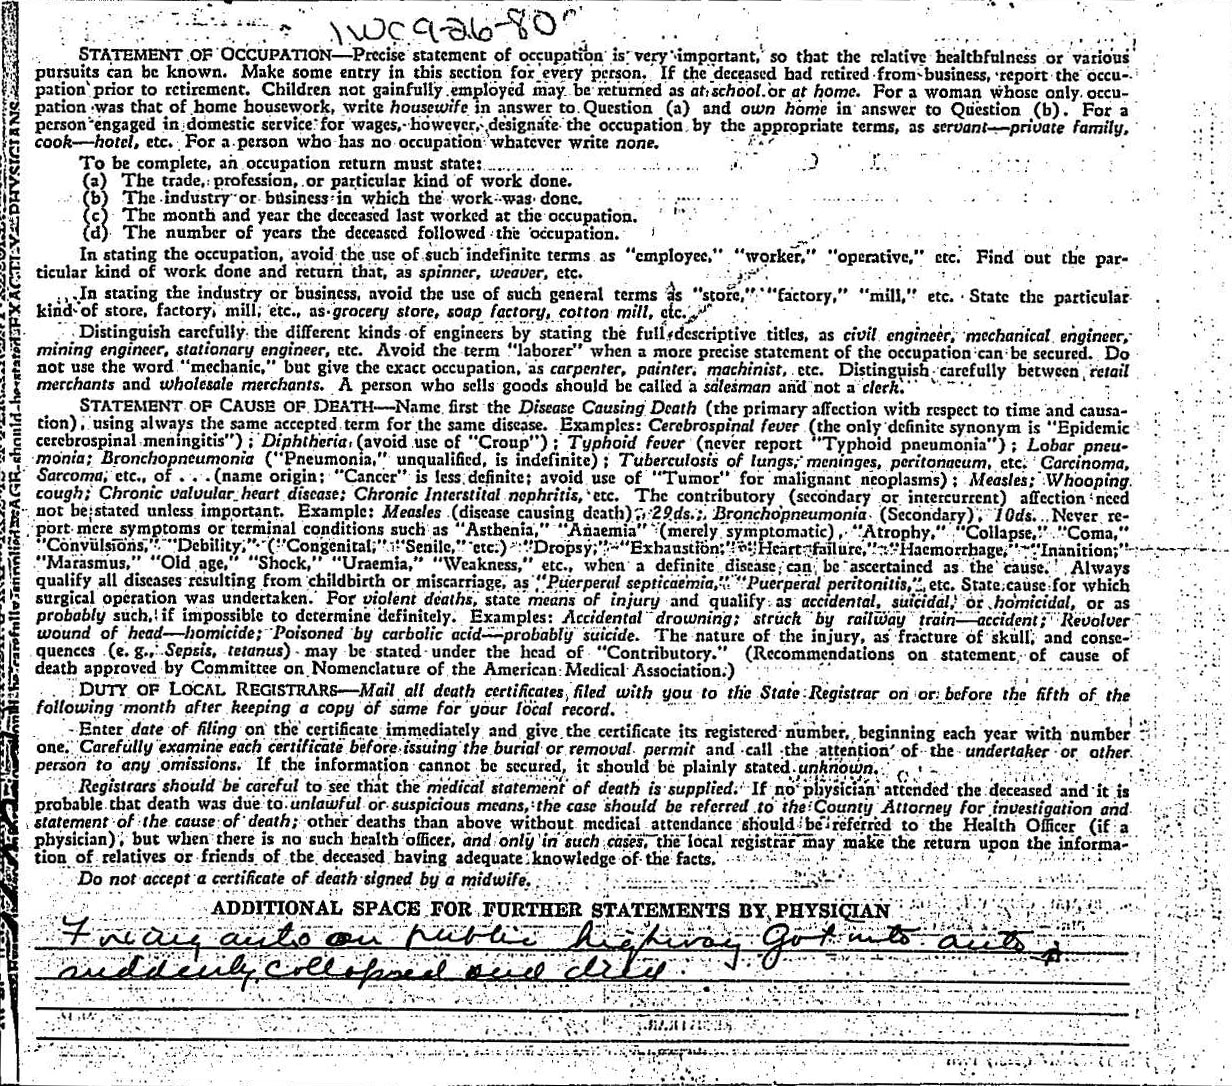 1WC 9-26-80
STATEMENT OF OCCUPATION—Precise statement of occupation is very important, so that the relative healthfulness or various
pursuits can be known. Make some entry in this section for every person. If the deceased had retired from business, report the occu-
pation prior to retirement. Children not gainfully employed may be returned as at school or at home. For a woman whose only occu-
pation was that of home housework, write housewife in answer to Question (a) and own home in answer to Question (b). For a
person engaged in domestic service for wages, however, designate the occupation by the appropriate terms, as servant—private family,
cook—hotel, etc. For a person who has no occupation whatever write none.
To be complete, an occupation return must state:
(a) The trade, profession, or particular kind of work done.
(b) The industry or business in which the work was done.
(c) The month and year the deceased last worked at the occupation.
(d) The number of years the deceased followed the occupation.
In stating the occupation, avoid the use of such indefinite terms as "employee," "worker," "operative," etc. Find out the par-
ticular kind of work done and return that, as spinner, weaver, etc.
In stating the industry or business, avoid the use of such general terms as "store," "factory," "mill," etc. State the particular
kind of store, factory, mill, etc., as grocery store, soap factory, cotton mill, etc.
Distinguish carefully the different kinds of engineers by stating the full descriptive titles, as civil engineer, mechanical engineer,
mining engineer, stationary engineer, etc. Avoid the term "laborer" when a more precise statement of the occupation can be secured. Do
not use the word "mechanic," but give the exact occupation, as carpenter, painter, machinist, etc. Distinguish carefully between retail
merchants and wholesale merchants. A person who sells goods should be called a salesman and not a clerk.
STATEMENT OF CAUSE OF DEATH—Name first the Disease Causing Death (the primary affection with respect to time and causa-
tion), using always the same accepted term for the same disease. Examples: Cerebrospinal fever (the only definite synonym is "Epidemic
cerebrospinal meningitis"); Diphtheria (avoid use of "Croup"); Typhoid fever (never report "Typhoid pneumonia"); Lobar pneu-
monia; Bronchopneumonia ("Pneumonia," unqualified, is indefinite); Tuberculosis of lungs, meninges, peritonaeum, etc. Carcinoma,
Sarcoma, etc., of . . . (name origin; "Cancer" is less definite; avoid use of "Tumor" for malignant neoplasms); Measles; Whooping
cough; Chronic valvular heart disease; Chronic Interstital nephritis, etc. The contributory (secondary or intercurrent) affection need
not be stated unless important. Example: Measles (disease causing death), 29ds.; Bronchopneumonia (Secondary), 10ds. Never re-
port mere symptoms or terminal conditions such as "Asthenia," "Anaemia" (merely symptomatic), "Atrophy," "Collapse," "Coma,"
"Convulsions," "Debility," ("Congenital," "Senile," etc.) "Dropsy," "Exhaustion," "Heart failure," "Haemorrhage," "Inanition,"
"Marasmus," "Old age," "Shock," "Uraemia," "Weakness," etc., when a definite disease can be ascertained as the cause. Always
qualify all diseases resulting from childbirth or miscarriage, as "Puerperal septicaemia," "Puerperal peritonitis," etc. State cause for which
surgical operation was undertaken. For violent deaths, state means of injury and qualify as accidental, suicidal, or homicidal, or as
probably such, if impossible to determine definitely. Examples: Accidental drowning; struck by railway train—accident; Revolver
wound of head—homicide; Poisoned by carbolic acid—probably suicide. The nature of the injury, as fracture of skull, and conse-
quences (e. g., Sepsis, tetanus) may be stated under the head of "Contributory." (Recommendations on statement of cause of
death approved by Committee on Nomenclature of the American Medical Association.)
DUTY OF LOCAL REGISTRARS—Mail all death certificates filed with you to the State Registrar on or before the fifth of the
following month after keeping a copy of same for your local record.
Enter date of filing on the certificate immediately and give the certificate its registered number, beginning each year with number
one. Carefully examine each certificate before issuing the burial or removal permit and call the attention of the undertaker or other
person to any omissions. If the information cannot be secured, it should be plainly stated unknown.
Registrars should be careful to see that the medical statement of death is supplied. If no physician attended the deceased and it is
probable that death was due to unlawful or suspicious means, the case should be referred to the County Attorney for investigation and
statement of the cause of death; other deaths than above without medical attendance should be referred to the Health Officer (if a
physician), but when there is no such health officer, and only in such cases, the local registrar may make the return upon the informa-
tion of relatives or friends of the deceased having adequate knowledge of the facts.
Do not accept a certificate of death signed by a midwife.
ADDITIONAL SPACE FOR FURTHER STATEMENTS BY PHYSICIAN
auto on public highway Got into auto &
suddenly collapsed and died